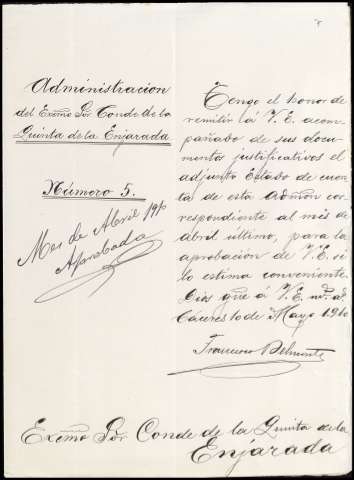 Administracion
del Exċmo Sõr Conde de la
Quinta de la Enjarada.
Número 5.
Mes de Abril 1910
Aprobada
Tengo el honor de
remitir á V.E. acom-
pañado de sus docu-
mentos justificativos el
adjunto Estado de cuen-
ta de esta Admõn cor-
respondiente al més de
Abril último, para la
aprobacion de V.E. si
lo estima conveniente
Dios gue á V.E. ms. as.
Cáceres 10 de Mayo 1910
Francisco Belmonte
Excmo Sõr Conde de la Quinta de la
Enjarada